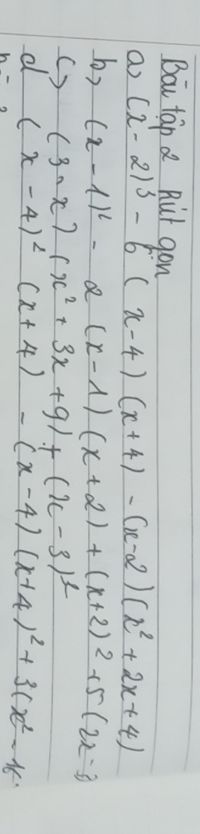 Bài tập 2 Rút gọn
a) (x-2)³ - 6 (x-4) (x+4) - (x-2) (x² + 2x + 4)
b) (x-1)² - 2 (x-1) (x+2) + (x+2)² + 5 (2x-
c) (3-x) (x² + 3x + 9) + (x-3)³
d (x-4)² (x+4) - (x-4) (x+4)² + 3 (x² - 16